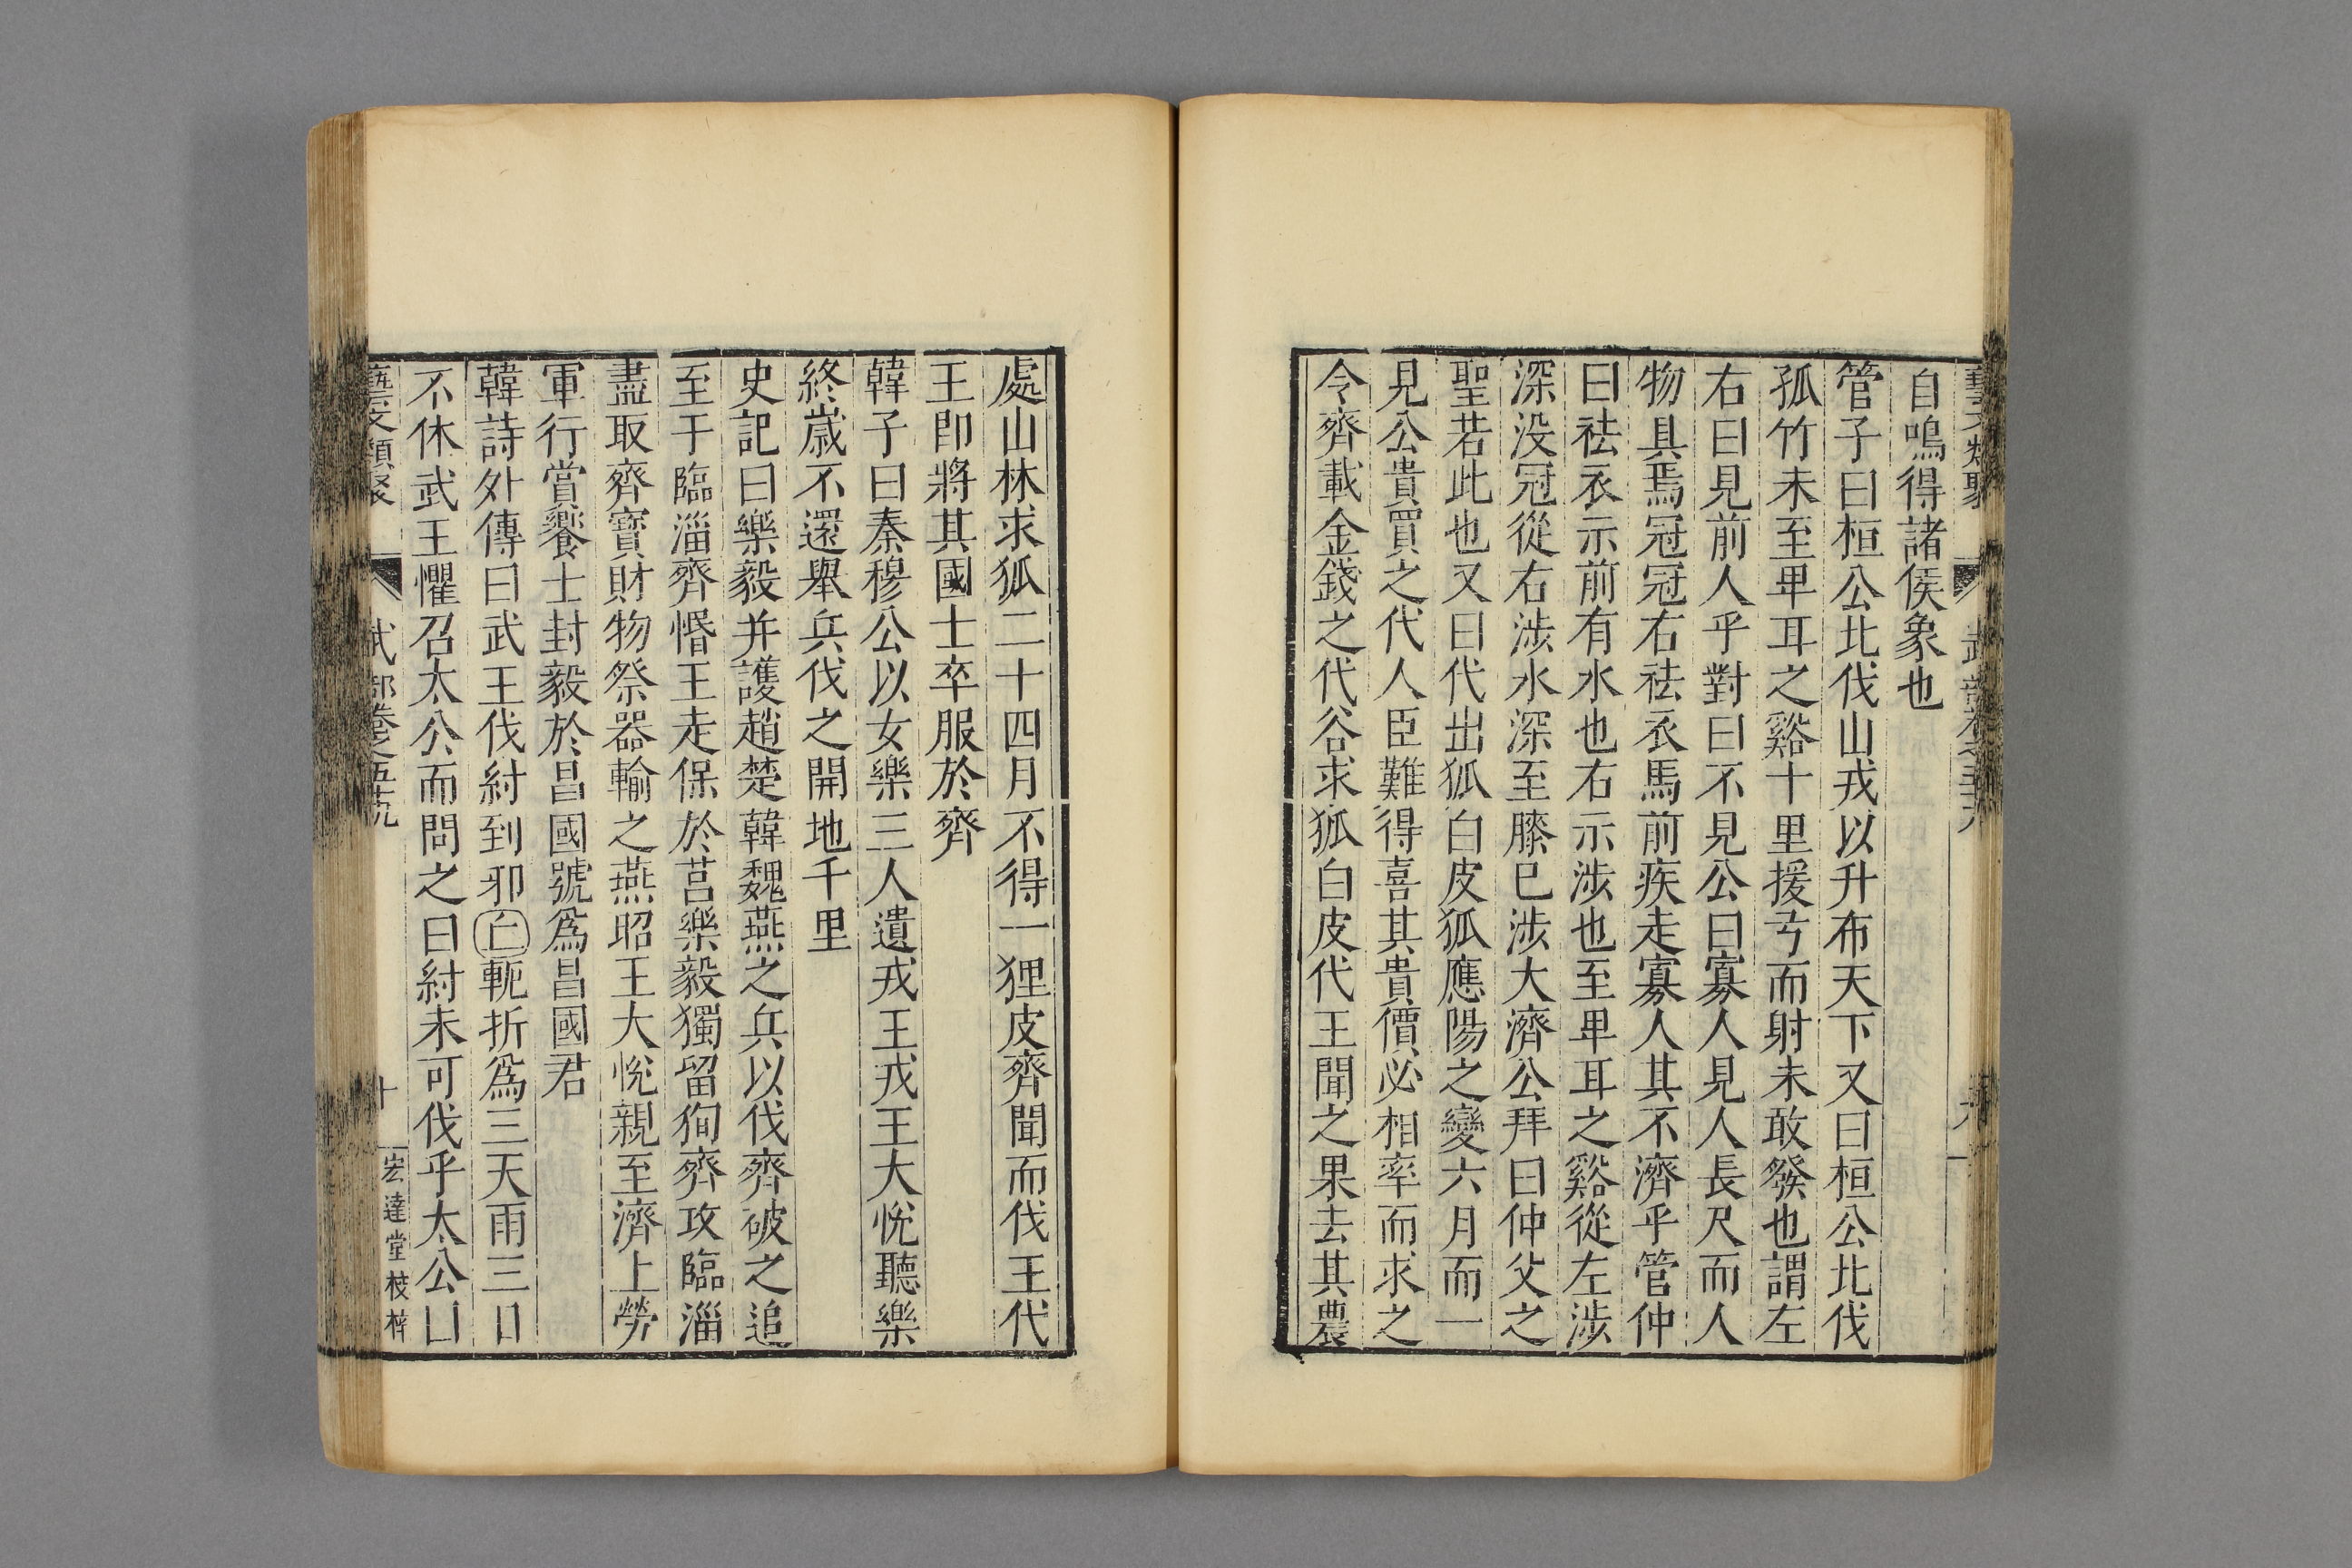 自鳴得諸侯象也
管子曰桓公北伐山戎以升布天下又曰桓公北伐
孤竹未至卑耳之谿十里援弓而射未敢發也謂左
右曰見前人乎對曰不見公曰寡人見人長尺而人
物具焉冠冠右袪衣馬前疾走寡人其不濟乎管仲
曰袪衣示前有水也右示涉也至卑耳之谿從左涉
深没冠從右涉水深至膝已涉大濟公拜曰仲父之
聖若此也又曰代出狐白皮狐應陽之變六月而一
見公貴買之代人臣難得喜其貴價必相率而求之
令齊載金錢之代谷求狐白皮代王聞之果去其農
處山林求狐二十四月不得一狸皮齊聞而伐王代
王即將其國士卒服於齊
韓子曰秦穆公以女樂三人遺戎王戎王大悅聽樂
終歲不還舉兵伐之開地千里
史記曰樂毅并護趙楚韓魏燕之兵以伐齊破之追
至于臨淄齊愍王走保於莒樂毅獨留徇齊攻臨淄
盡取齊寶財物祭器輸之燕昭王大悅親至濟上勞
軍行賞饗士封毅於昌國號爲昌國君
韓詩外傳曰武王伐紂到邢亡軛折爲三天雨三日
不休武王懼召太公而問之曰紂未可伐乎太公曰
藝文類聚 武部卷之五十九 十 宏達堂校梓